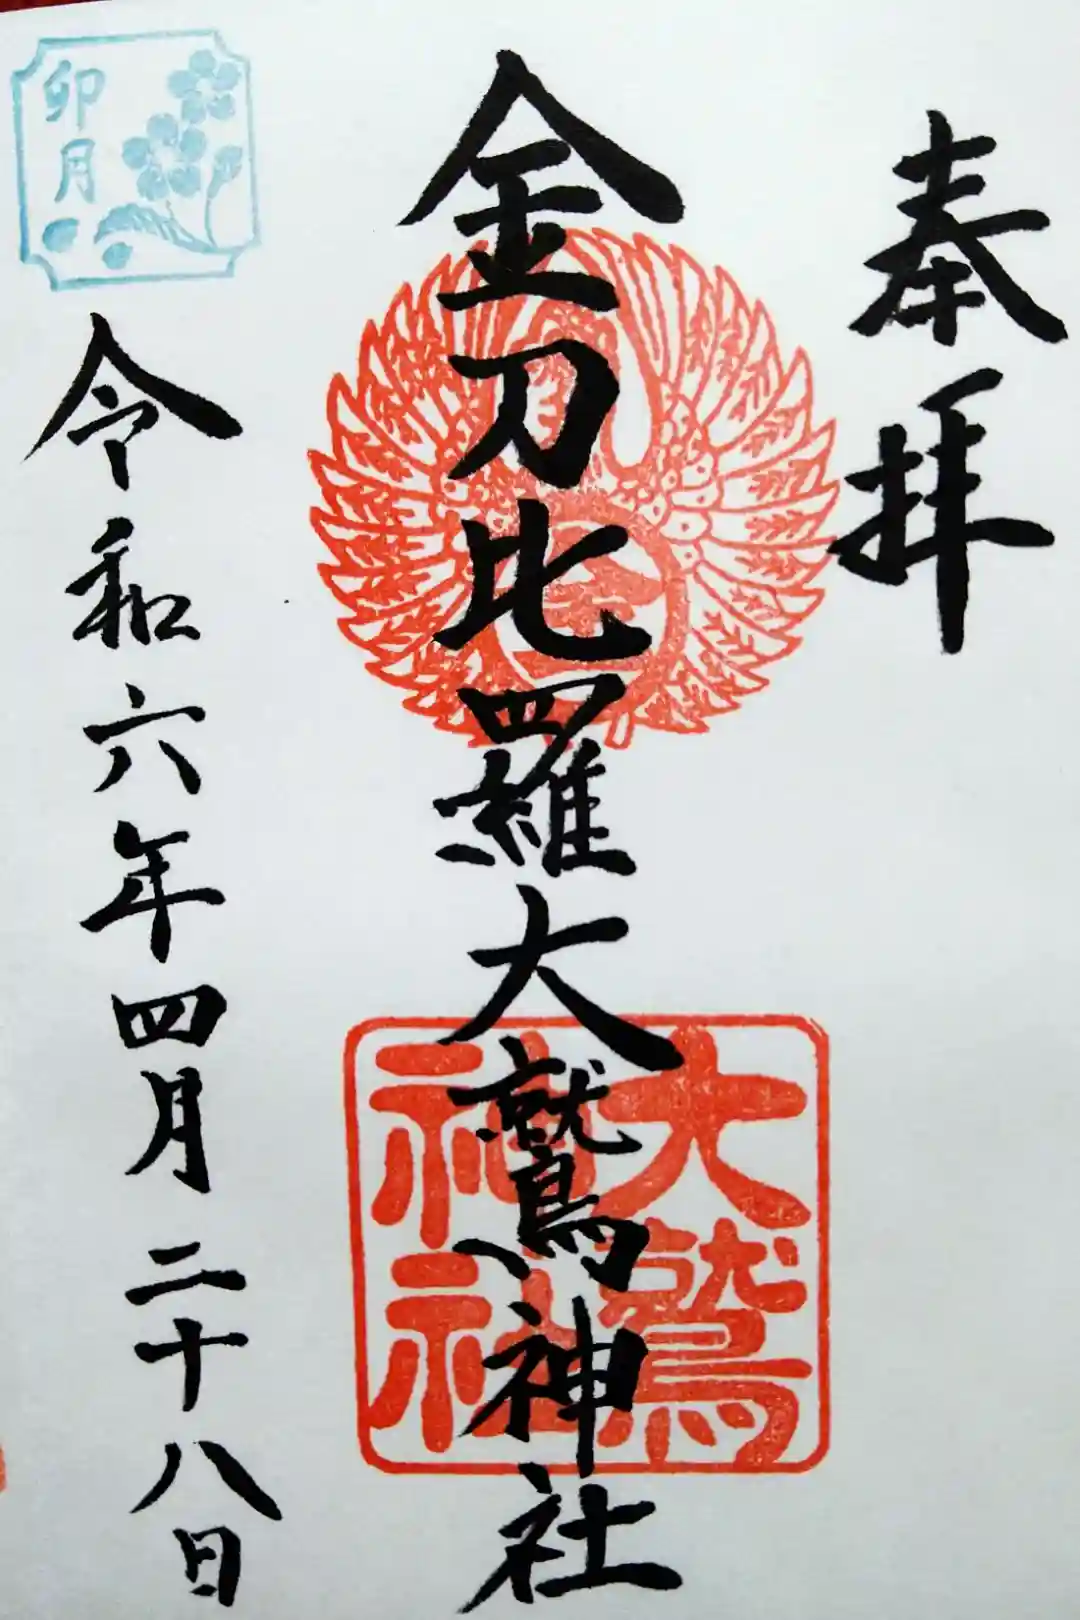 奉拝
金刀比羅大鷲神社
大鷲
神社
卯月
令和六年四月二十八日